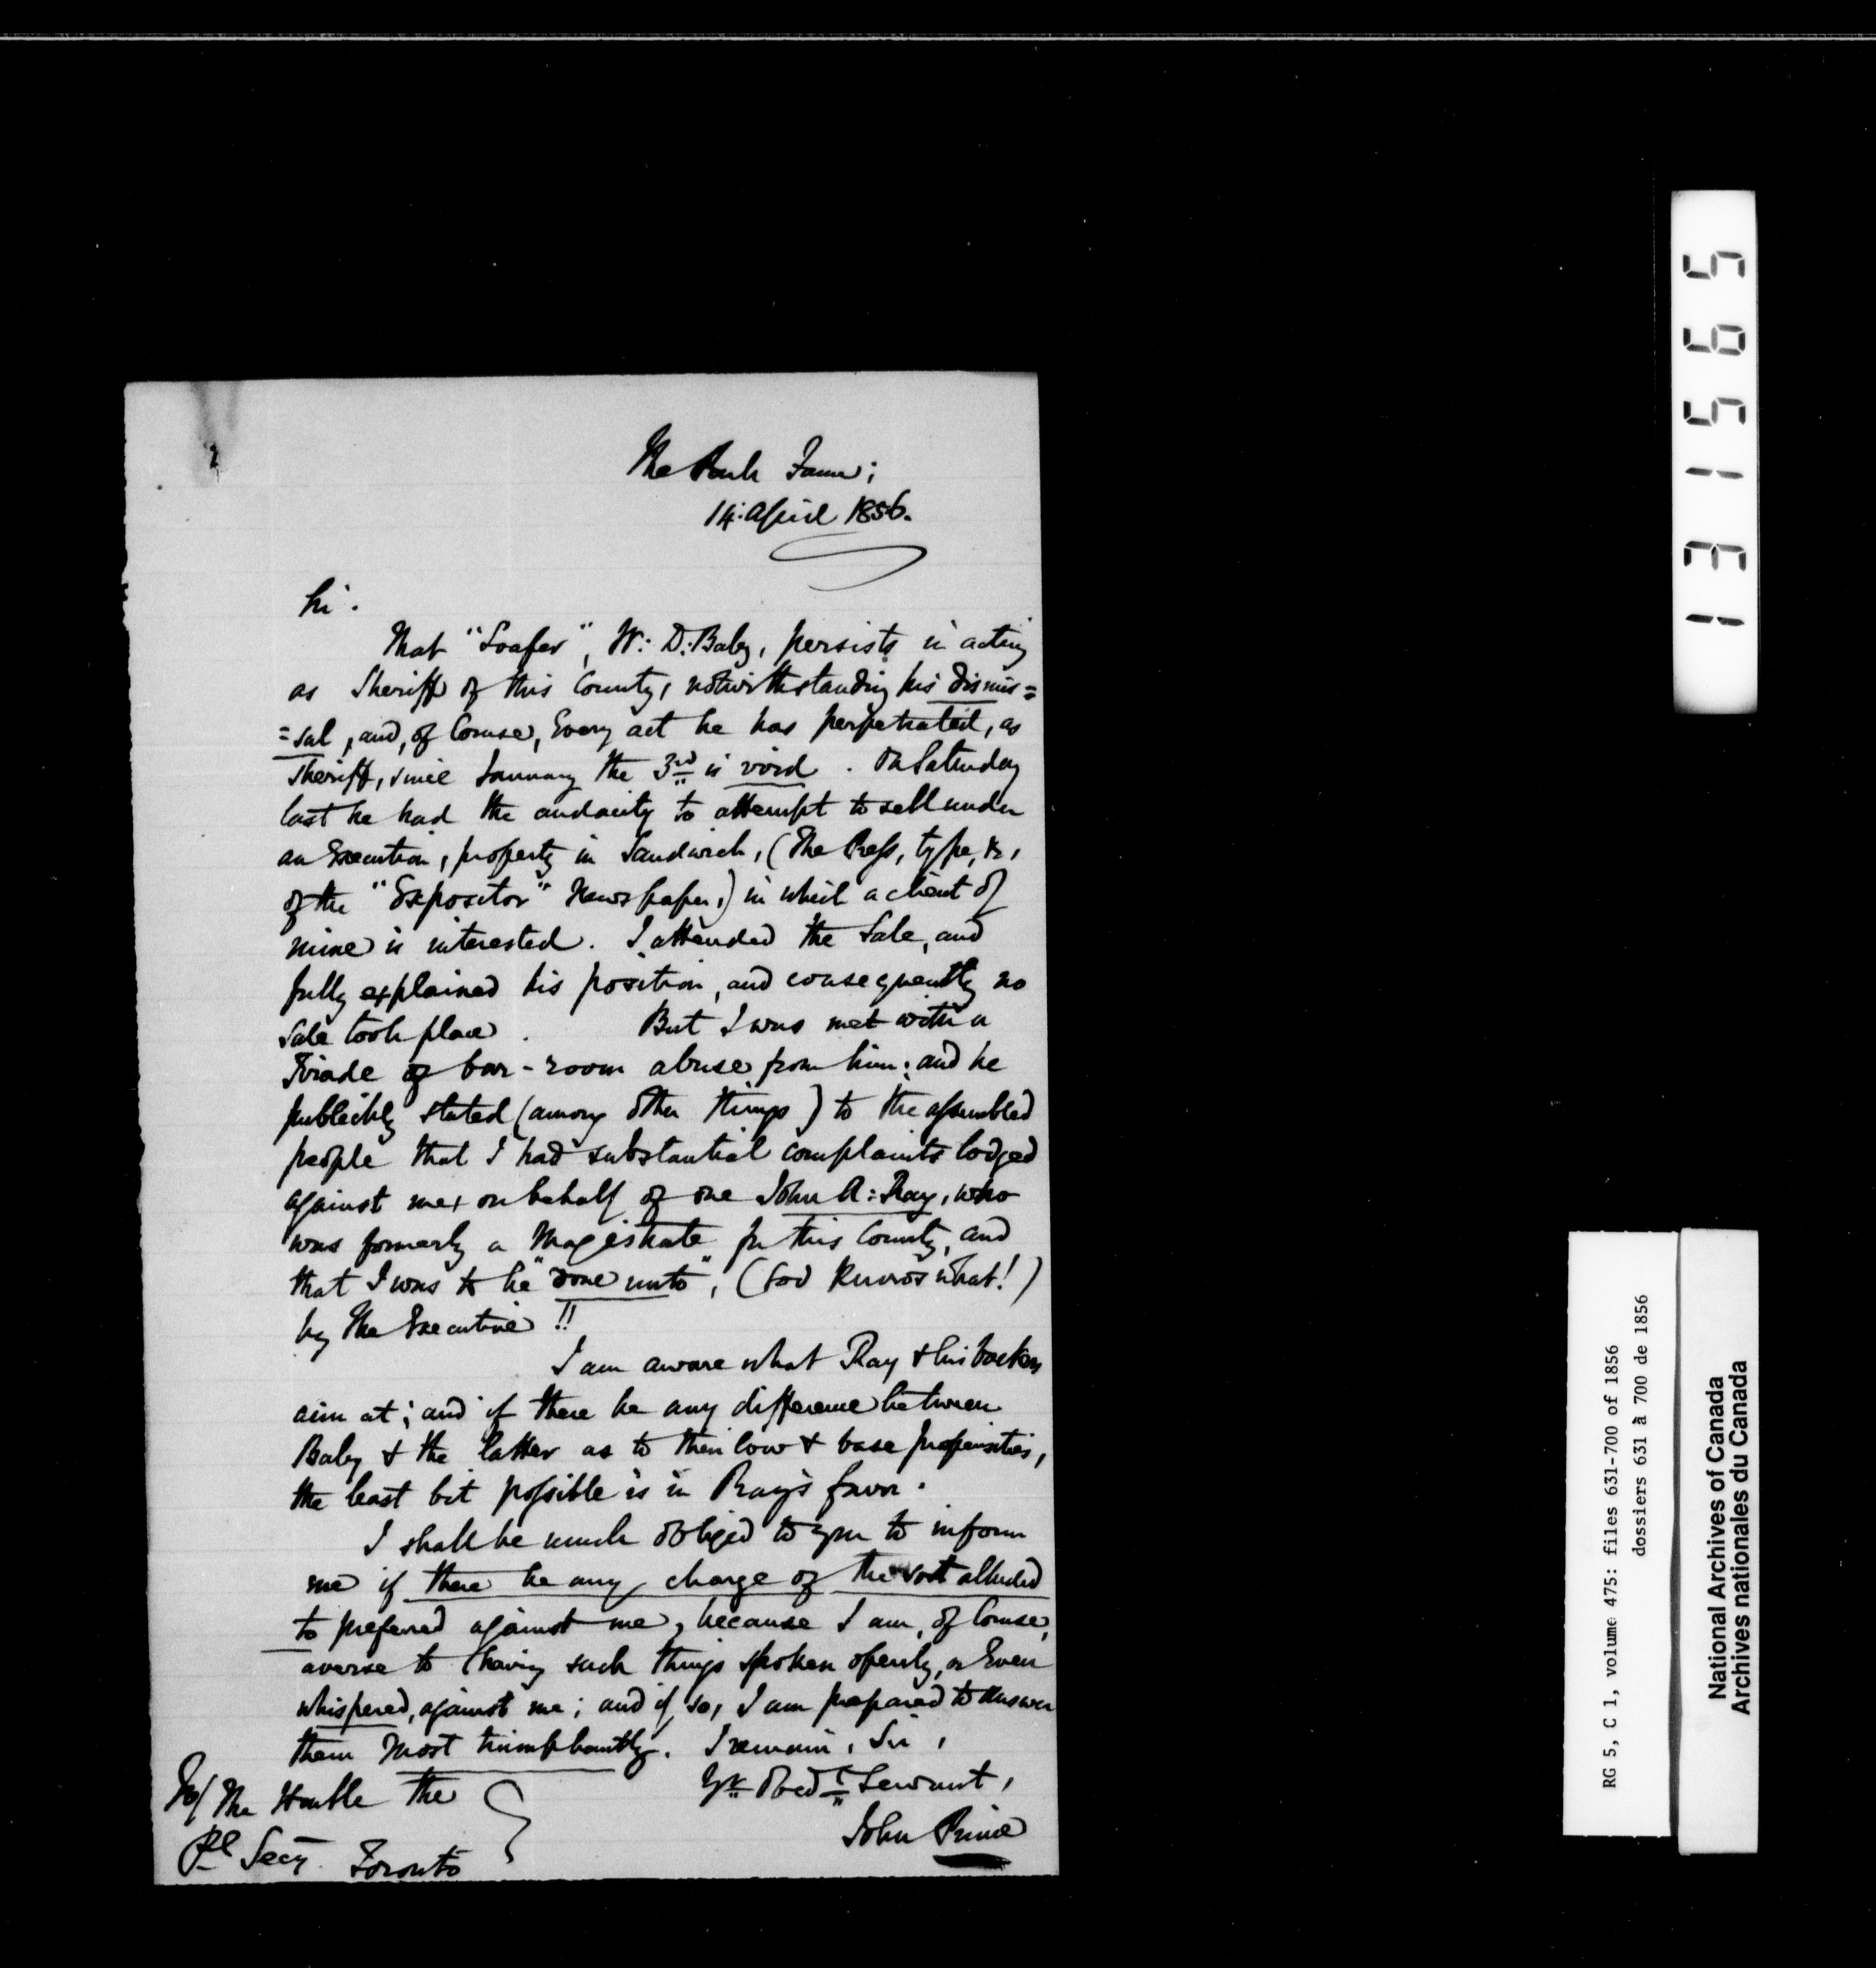 The Park Farm;
14: April 1856.
Sir.
That "Loafer", W: D: Baby, persists in acting
as Sheriff of this County, notwithstanding his dismis=
=sal, and, of Course, Every act he has perpetrated, as
Sheriff, since January the 3rd is void. On Saturday
last he had the audacity to attempt to sell under
an Execution, property in Sandwich, (The Press, type, &c,
of the "Expositor" Newspaper,) in which a client of
mine is interested. I attended the Sale, and
fully explained his position, and consequently no
Sale took place. But I was met with a
Tirade of bar-room abuse from him; and he
publickly stated (among other things) to the assembled
people that I had substantial complaints lodged
against me, on behalf of one John A: Ray, who
was formerly a Magistrate for this County, and
that I was to be "done unto", (God Knows what!)
by The Executive!!
I am aware what Ray & his backers
aim at; and if there be any difference between
Baby & the latter as to their low & base propensities,
the least bit possible is in Ray's favor.
I shall be much obliged to you to inform
me if there be any charge of the sort alluded
to preferred against me, because I am, of Course,
averse to having such things spoken openly, or Even
whispered, against me; and if so, I am prepared to answer
them Most triumphantly. I remain, Sir,
Yr Obedt Servant,
John Prince
To/ The Honble the
Pl Secy Toronto
131565
RG 5, C 1, volume 475: files 631-700 of 1856
dossiers 631 à 700 de 1856
National Archives of Canada
Archives nationales du Canada